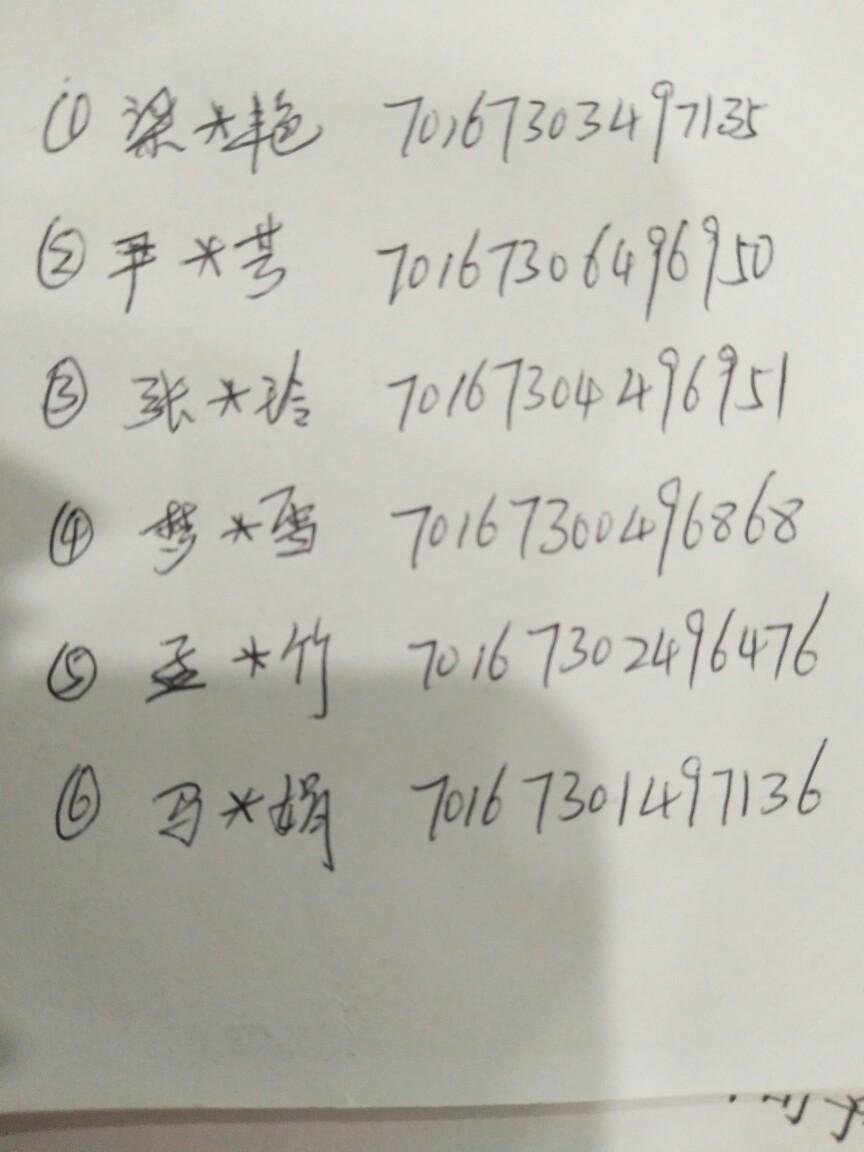 ① 梁*艳 70167303497135
② 尹*芳 70167306496950
③ 张*玲 70167304496951
④ 梦*雪 70167300496868
⑤ 孟*竹 70167302496476
⑥ 马*娟 70167301497136